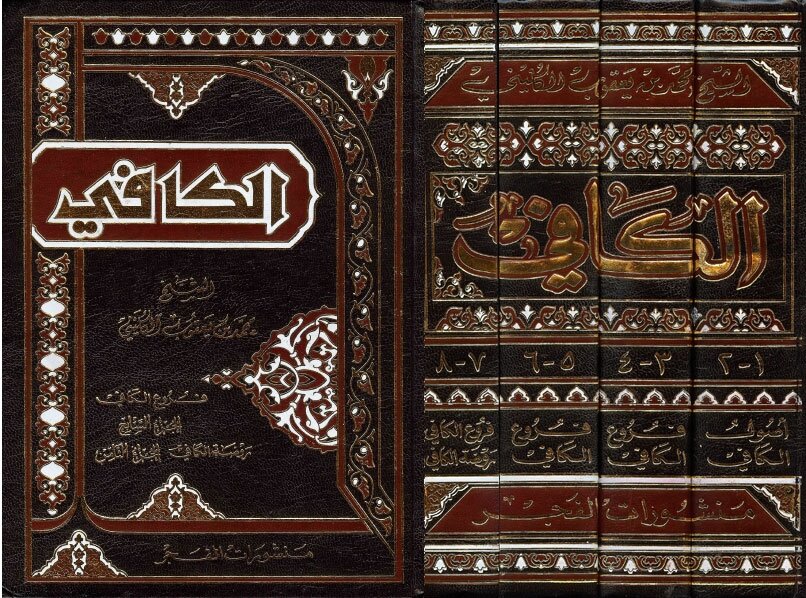 الكافي
الشيخ
محمد بن يعقوب الكليني
فروع الكافي
الجزء السابع
روضة الكافي الجزء الثامن
منشورات الفجر
الشيخ محمد بن يعقوب الكليني
الكافي
١-٢
٣-٤
٥-٦
٧-٨
أصول
الكافي
فروع
الكافي
فروع
الكافي
فروع الكافي
روضة الكافي
منشورات الفجر